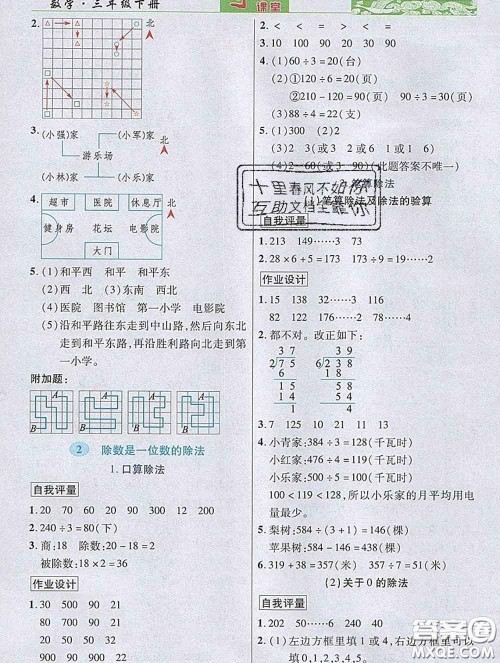 数学·三年级下册
课堂
北
3. (小强)家 (小军)家
北
游乐场
(小林)家 (小乐)家
4.
北
超市 医院 休息厅
健身房 花坛 电影院
大门
5. (1)和平西 和平 和平东
(2)西 北 (3)东南 西北
(4)医院 图书馆 第一小学 电影院
(5)沿和平路往东走到中山路,然后向东北
走到和平东路,再沿胜利路向北走到
第一小学。
附加题:
A
B
A
B
A
B
A
B
2 除数是一位数的除法
1.口算除法
自我评量
1. 20 70 60 200 1000 900 1200
2. 240÷3=80(下)
3. 商:18 除数:20-18=2
被除数:18×2=36
作业设计
1. 30 500 90 21
40 700 80 21
50 900 90 21
2.
3. 10 100 90 90 20 200
4. (1)60÷3=20(台)
(2)①120÷6=20(页)
②210-120=90(页) 90÷3=30(页)
5. (1)300 (2)2
6. (2)3 2(或3 2或6 1或6)
(4)2 60(或3 90)(此题答案不唯一)
十里春风不如你
互助文档全靠你
笔算除法
(1)笔算除法及除法的验算
自我评量
1. 213 149……3 73
2. 28×6+5=173 173÷9=19……2
作业设计
1. 15 138 32……6 316……2
82 122 176……2 68……5
2. 都不对。改正如下:
3 7
2)7 5
6
1 5
1 4
1
2 3 9
6)2 3 8
1 8
5 8
5 4
4
3.
4. 小青家:384÷3=128(千瓦时)
小红家:476÷4=119(千瓦时)
小乐家:500÷5=100(千瓦时)
100<119<128,所以小乐家的月平均用电
量最少。
5. 梨树:584÷(3+1)=146(棵)
苹果树:584-146=438(棵)
6. 319+38=357(米) 357÷7=51(米)
(2)关于0的除法
自我评量
1. 202 50……6 340 240
2. (1)左边方框里填1或4,右边方框里可以
填0,1,2,3,4,5。
答案圈
MXQE.COM